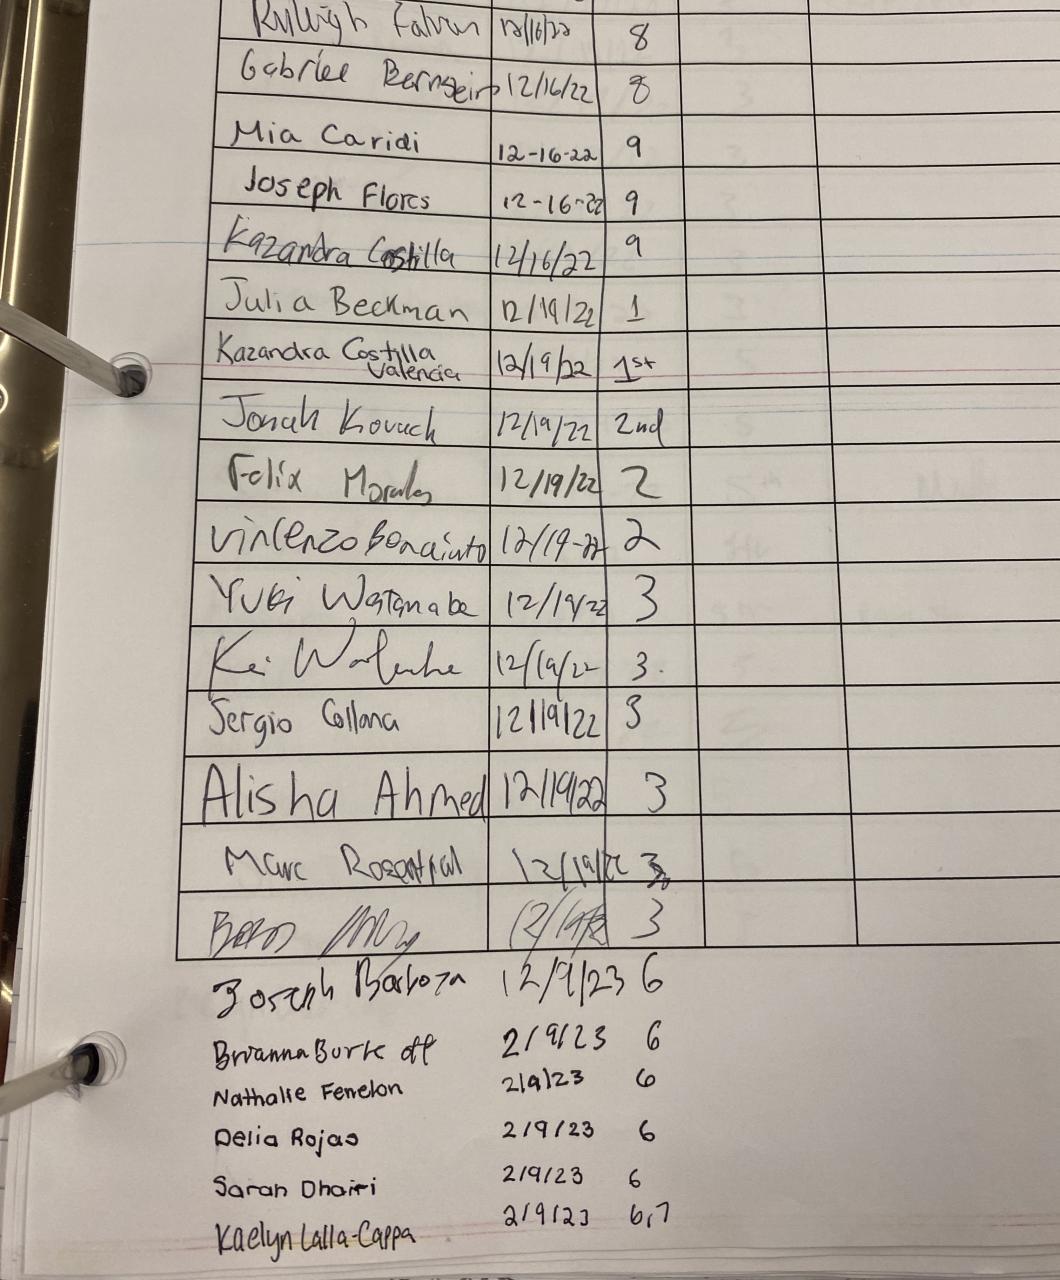 Ryleigh 12/16/22 8
Gabriee Bernsein 12/16/22 8
Mia Caridi 12-16-22 9
Joseph Flores 12-16-22 9
Kazandra Costilla 12/16/22 9
Julia Beckman 12/19/22 1
Kazandra Costilla 12/19/22 1st
Valencia
Jonah Kovach 12/19/22 2nd
Felix Morales 12/19/22 2
Vincenzo Bonaiuto 12/19-22 2
Yuki Watanabe 12/19/22 3
Kei 12/19/22 3.
Sergio Collana 12/19/22 3
Alisha Ahmed 12/19/22 3
Marc Rosenthal 12/19/22 3
3
Joseph Barboza 12/9/23 6
Brianna Burke off 2/9/23 6
Nathalie Fenelon 2/9/23 6
Delia Rojas 2/9/23 6
Sarah Dhairi 2/9/23 6
Kaelyn Lalla-Cappa 2/9/23 6,7